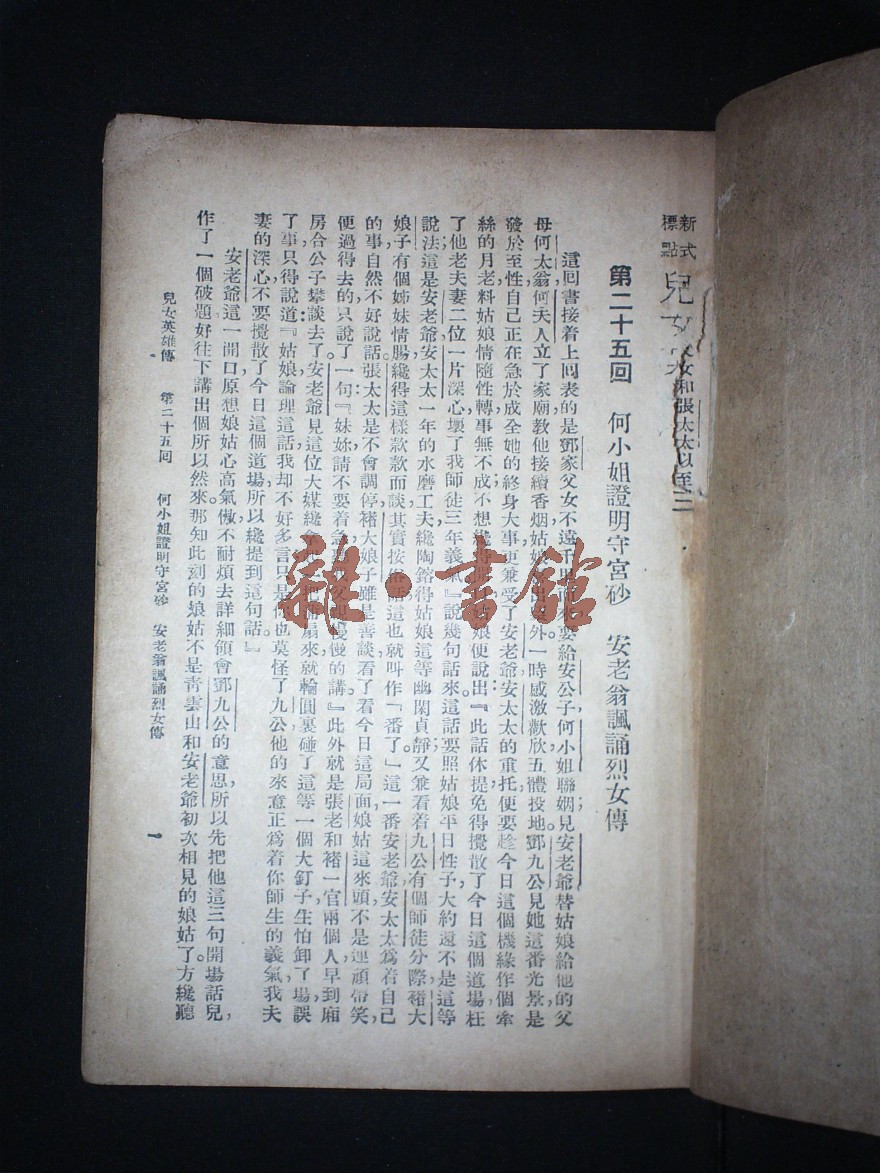 新式標點 兒女
女和張太太以至
第二十五回　何小姐證明守宮砂　安老翁諷誦烈女傳
這回書接着上回表的是鄧家父女不遠千里而來要給安公子何小姐聯姻見安老爺替姑娘給他的父
母何太翁何夫人立了家廟教他接續香烟姑娘出外一時感激歡欣五體投地鄧九公見她這番光景是
發於至性自己正在急於成全她的終身大事更兼受了安老爺安太太的重托便要趁今日這個機緣作個牽
絲的月老料姑娘情隨性轉事無不成不想纔得開口姑娘便說出『此話休提免得攪散了今日這個道場枉
了他老夫妻二位一片深心壞了我師徒三年義氣』說幾句話來這話要照姑娘平日性子大約還不是這等
說法這是安老爺安太太一年的水磨工夫纔陶鎔得姑娘這等幽閑貞靜又兼看着九公有個師徒分際褚大
娘子有個姊妹情腸纔得這樣款款而談其實按俗話這也就叫作『番了』這一番安老爺安太太爲着自己
的事自然不好說話張太太是不會調停褚大娘子雖是善談看了看今日這局面姑娘這來頭不是連頑帶笑
便過得去的只說了一句『妹妹請不要着急慢慢的講』此外就是張老和褚一官兩個人早到廂
房合公子攀談去了安老爺見這位大媒纔拿起一把扇來就輪圓裏碰了這等一個大釘子生怕卸了場誤
了事只得說道『姑娘論理這話我却不好多言只是你也莫怪了九公他的來意正爲着你師生的義氣我夫
妻的深心不要攪散了今日這個道場所以纔提到這句話』
安老爺這一開口原想姑娘心高氣傲不耐煩去詳細領會鄧九公的意思所以先把他這三句開場話兒，
作了一個破題好往下講出個所以然來。那知此刻的姑娘不是靑雲山和安老爺初次相見的姑娘了。方纔聽
兒女英雄傳　第二十五回　何小姐證明守宮砂　安老翁諷誦烈女傳
一
雜·書館